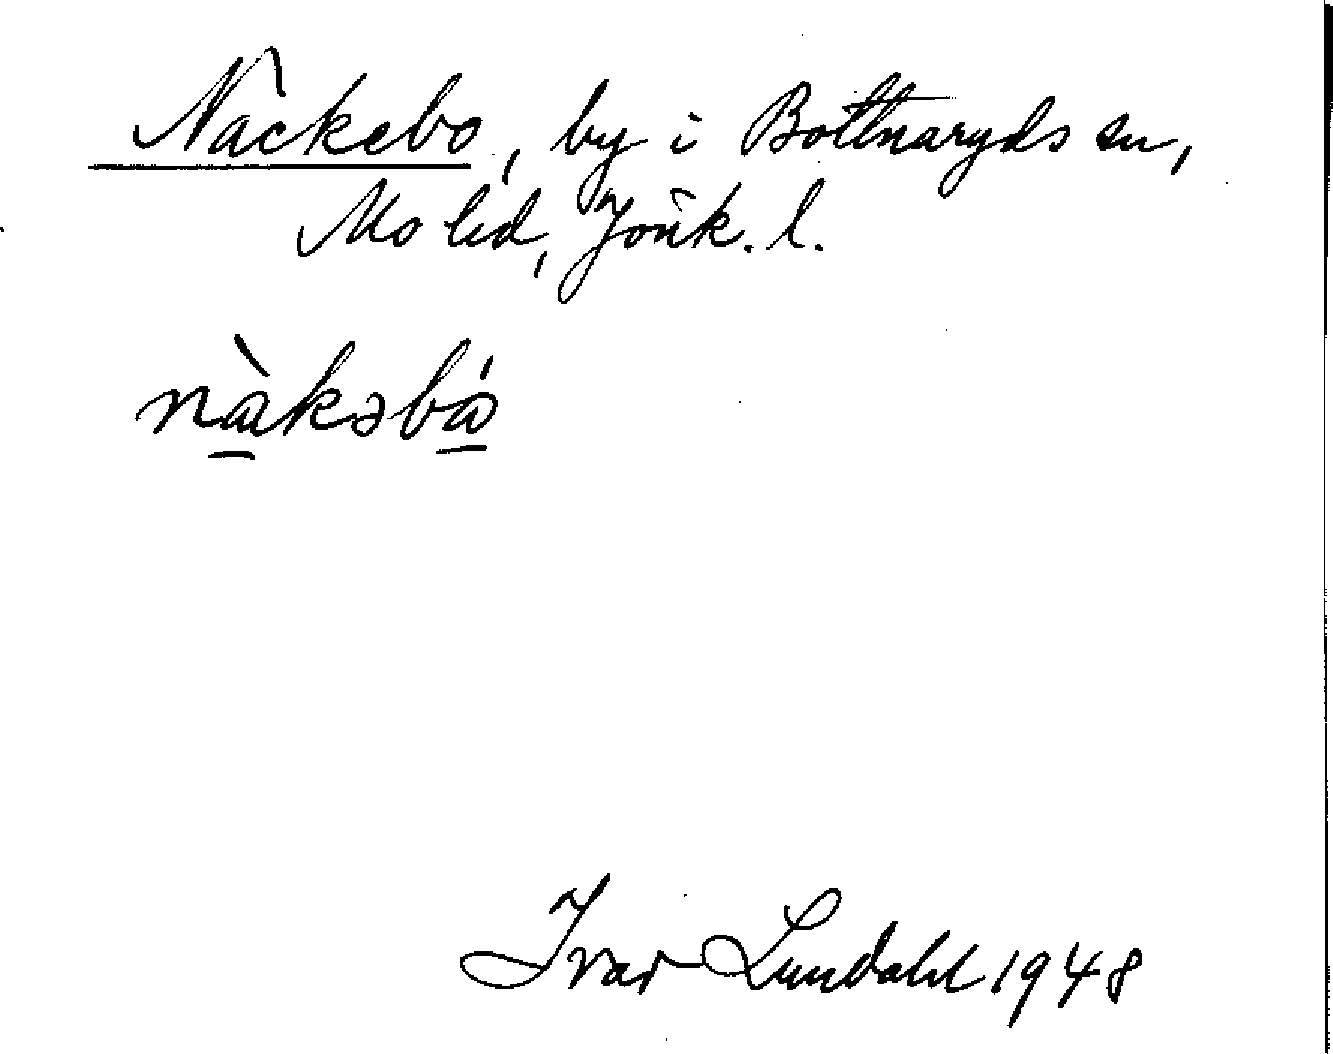 Nackebo, by i Bottnaryds sn,
Mo hd, Jönk. l.
nàkəbó
Ivar Lundahl 1948